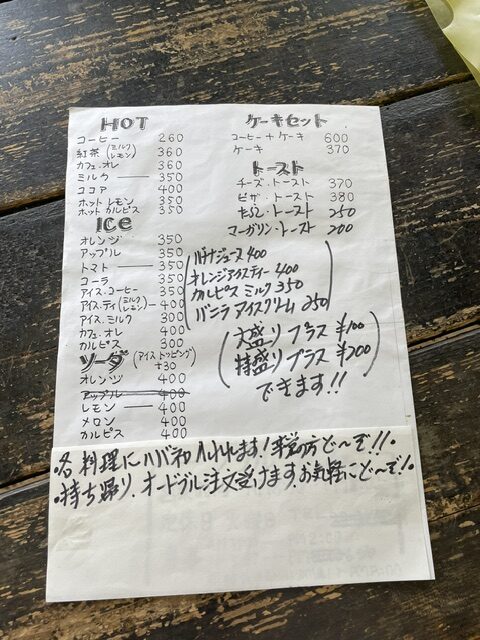 HOT
コーヒー 260
紅茶(ミルク レモン) 360
カフェ.オレ 360
ミルク ── 350
ココア 400
ホット レモン 350
ホット カルピス 350
ICe
オレンジ 350
アップル 350
トマト ── 350
コーラ 350
アイス.コーヒー 350
アイス.ティ(ミルク レモン)─ 400
アイス.ミルク 300
カフェ.オレ 400
カルピス 300
ソーダ(アイストッピング +30
オレンジ 400
アップル 400
レモン ── 400
メロン 400
カルピス 400
ケーキセット
コーヒー+ケーキ 600
ケーキ 370
トースト
チーズ.トースト 370
ピザ.トースト 380
たらこ.トースト 250
マーガリン.トースト 200
(バナナジュース 400
オレンジアイスティー 400
カルピス ミルク 350
バニラ アイスクリーム 250)
(大盛り プラス ¥100
特盛り プラス ¥200)
できます!!
・各料理にハバネロ入れれます!希望の方ど〜ぞ!!
・持ち帰り、オードブル注文受けます。お気軽にど〜ぞ!